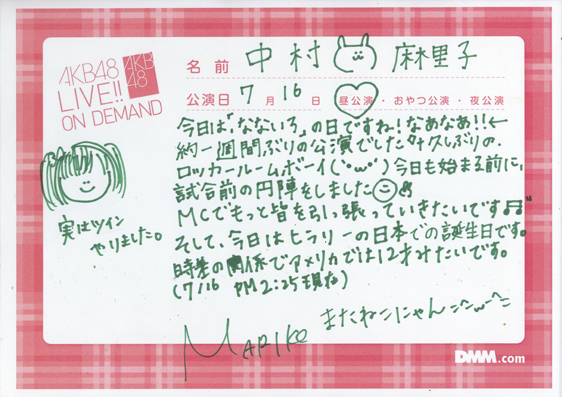 AKB48
LIVE!!
ON DEMAND
AKB
48
名前 中村 麻里子
公演日 7月16日 昼公演・おやつ公演・夜公演
今日は「なないろ」の日ですね!なあなあ!!←
約一週間ぶりの公演でした タタ 久しぶりの、
ロッカールームボーイ(`・ω・´)今日も始まる前に、
試合前の円陣をしました
MCでもっと皆を引っ張っていきたいです♬
そして、今日はヒラリーの日本での誕生日です。
時差の関係でアメリカでは12才みたいです。
(7/16 PM2:25現在)
実はツイン
やりました。
またねこにゃん
MARIKO
DMM.com